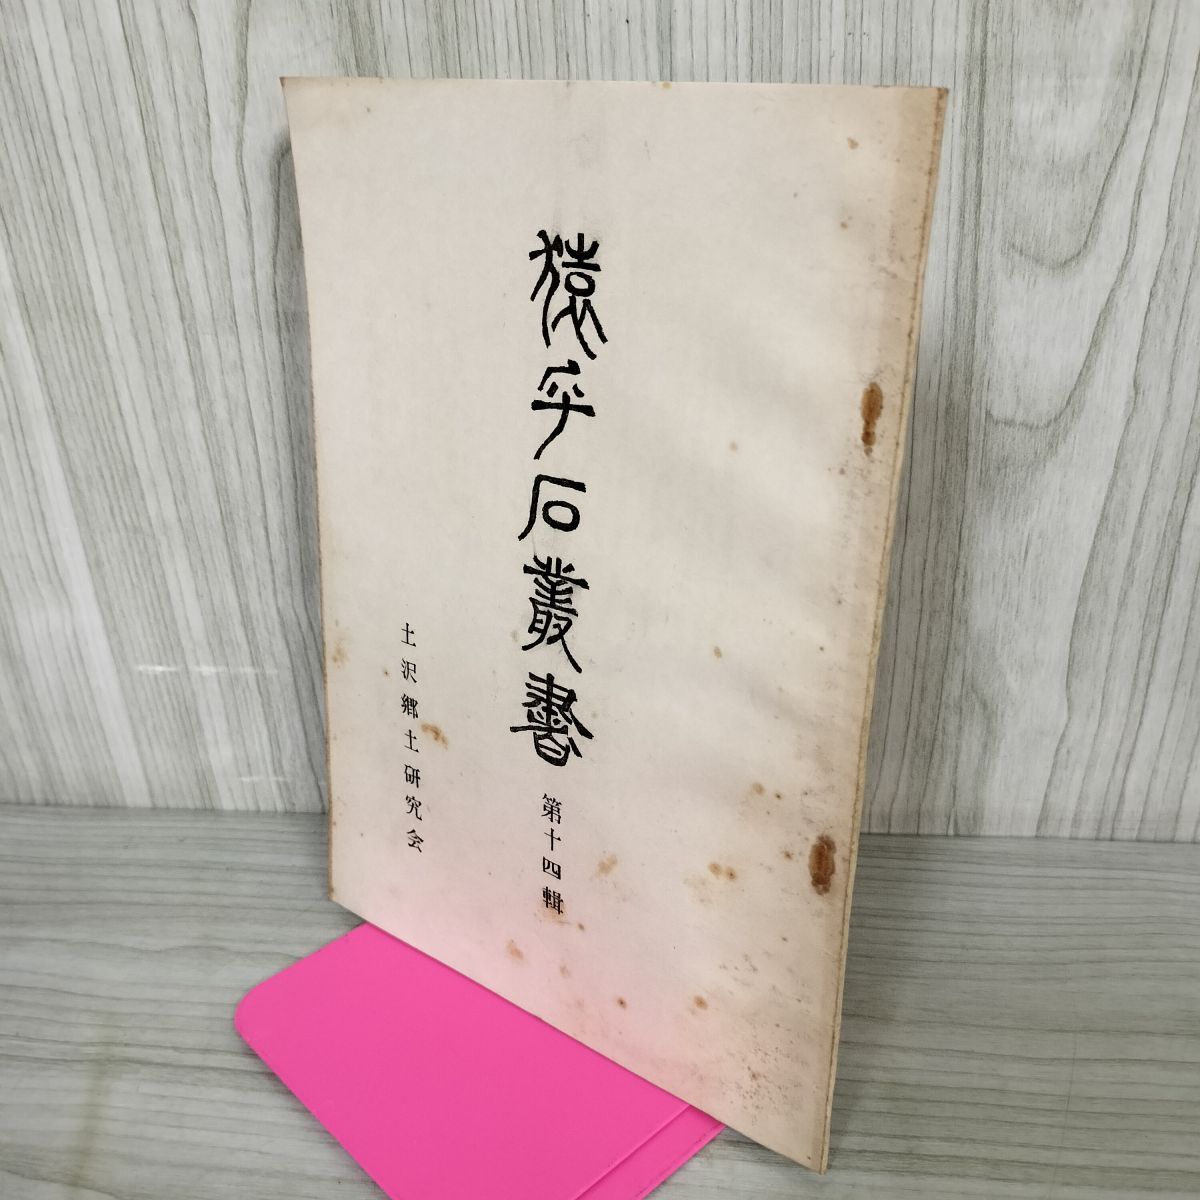 猿乎石叢書 第十四輯
土沢郷土研究会